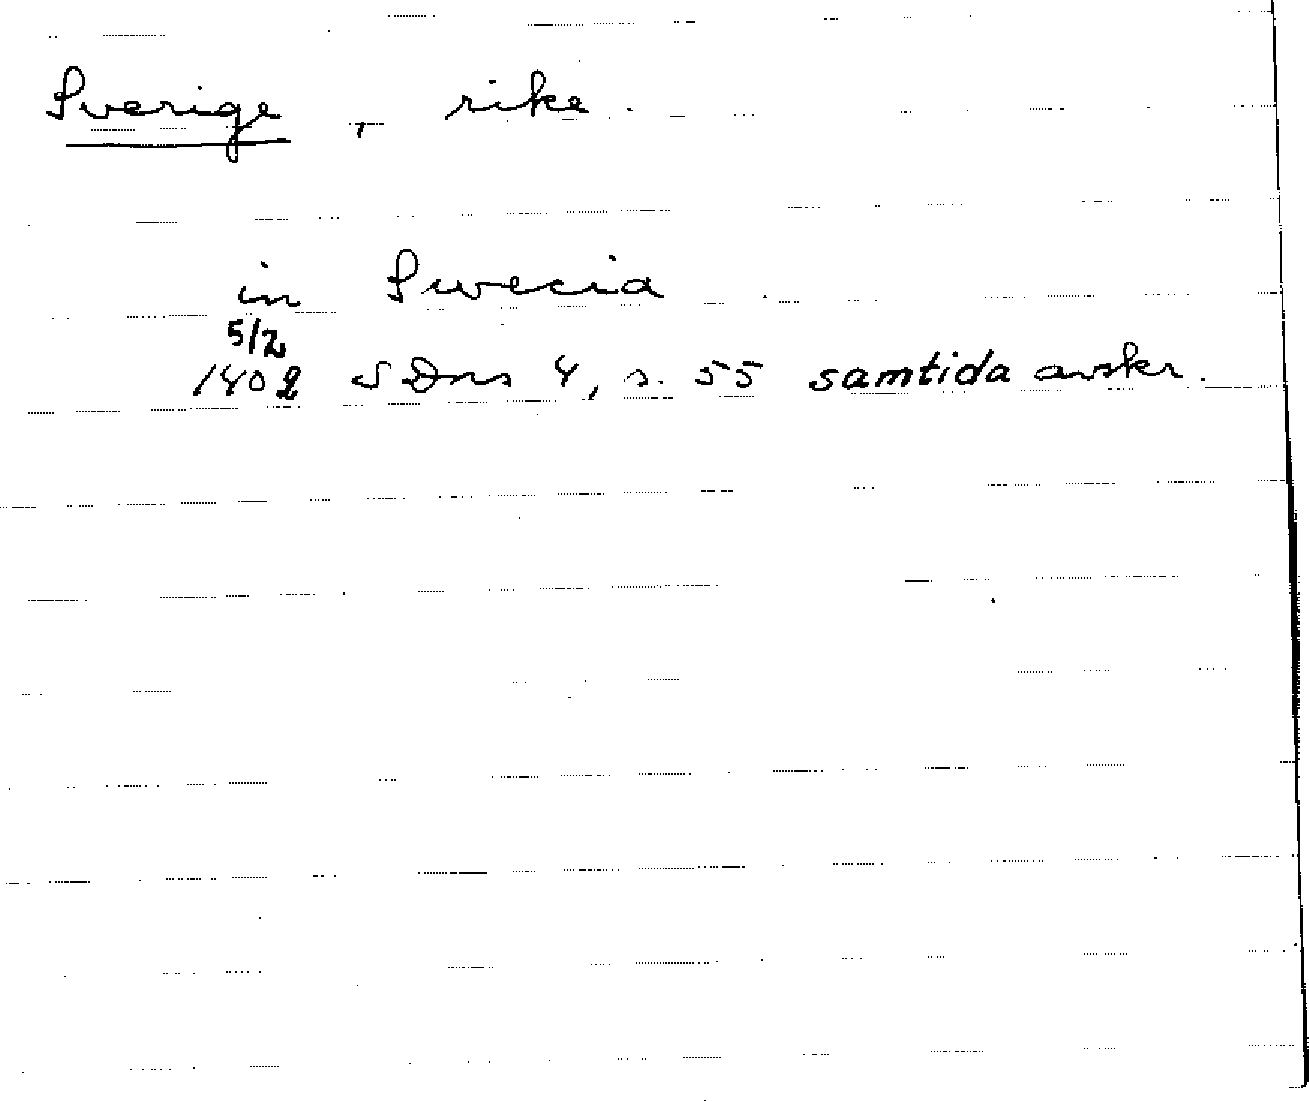 Sverige, rike.
in Swecia
5/2
1402 SDns 4, s. 55 samtida avskr.